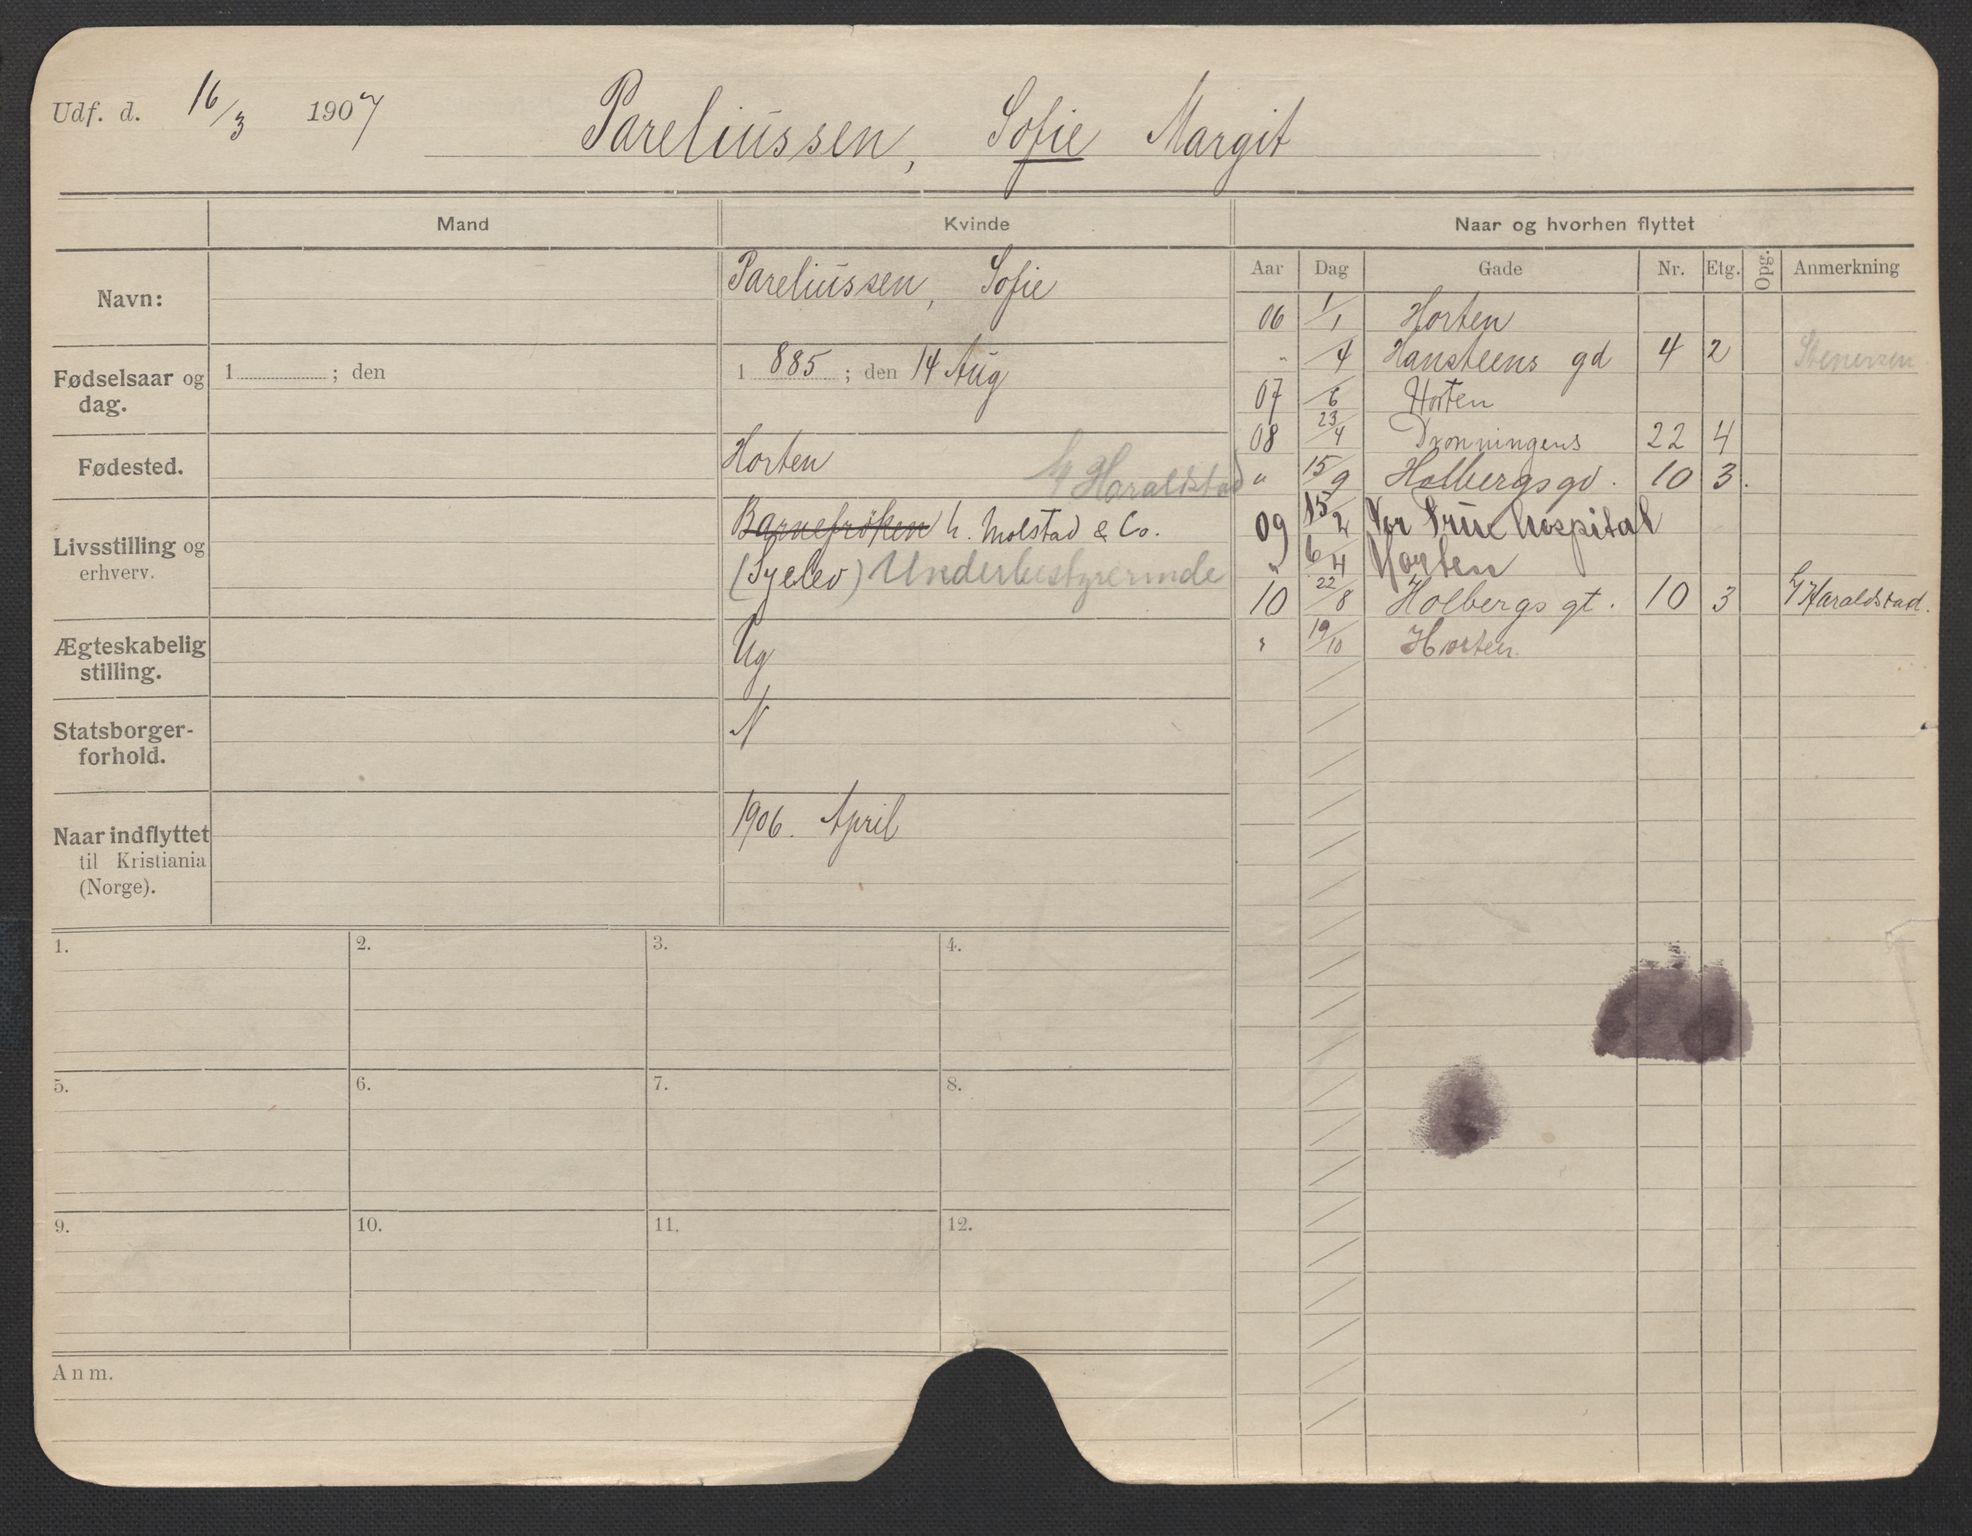 Udf. d. 16/3 1907 Pareliussen, Sofie Margit
Mand Kvinde Naar og hvorhen flyttet
Navn: Pareliussen, Sofie
Fødselsaar og dag. 1 ; den 1 885 ; den 14 Aug
Fødested. Horten
Haraldstad
Livsstilling og erhverv. Barnefrøken h. Molstad & Co.
(Syelev) Underbestyrerinde
Ægteskabelig stilling. Ug
Statsborgerforhold. N
Naar indflyttet til Kristiania (Norge). 1906. April
Aar Dag Gade Nr. Etg. Opg. Anmerkning
06 1/1 Horten
" /4 Hansteens gd 4 2 Stenersen
07 /6 Horten
08 23/4 Dronningens 22 4
" 15/9 Holbergs gd. 10 3.
09 15/2 Vor Frue hospital
" 6/4 Horten
10 22/8 Holbergs gt. 10 3 Haraldstad.
" 19/10 Horten.
1. 2. 3. 4.
5. 6. 7. 8.
9. 10. 11. 12.
Anm.